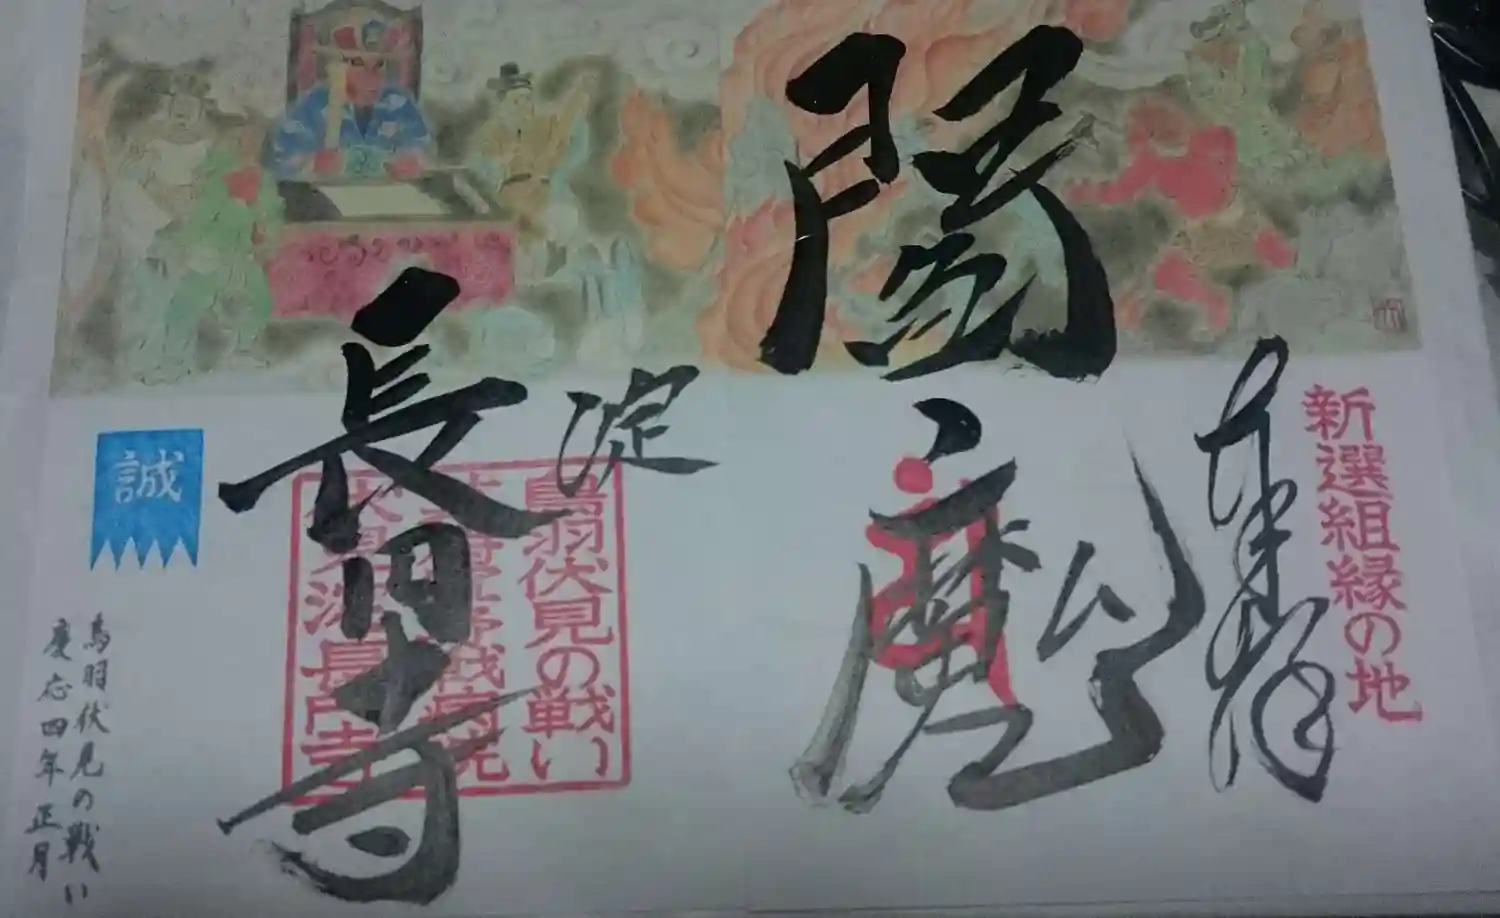 新選組縁の地
奉拝
閻魔仏
淀
長円寺
鳥羽伏見の戦い
長円寺
誠
鳥羽伏見の戦い
慶応四年正月